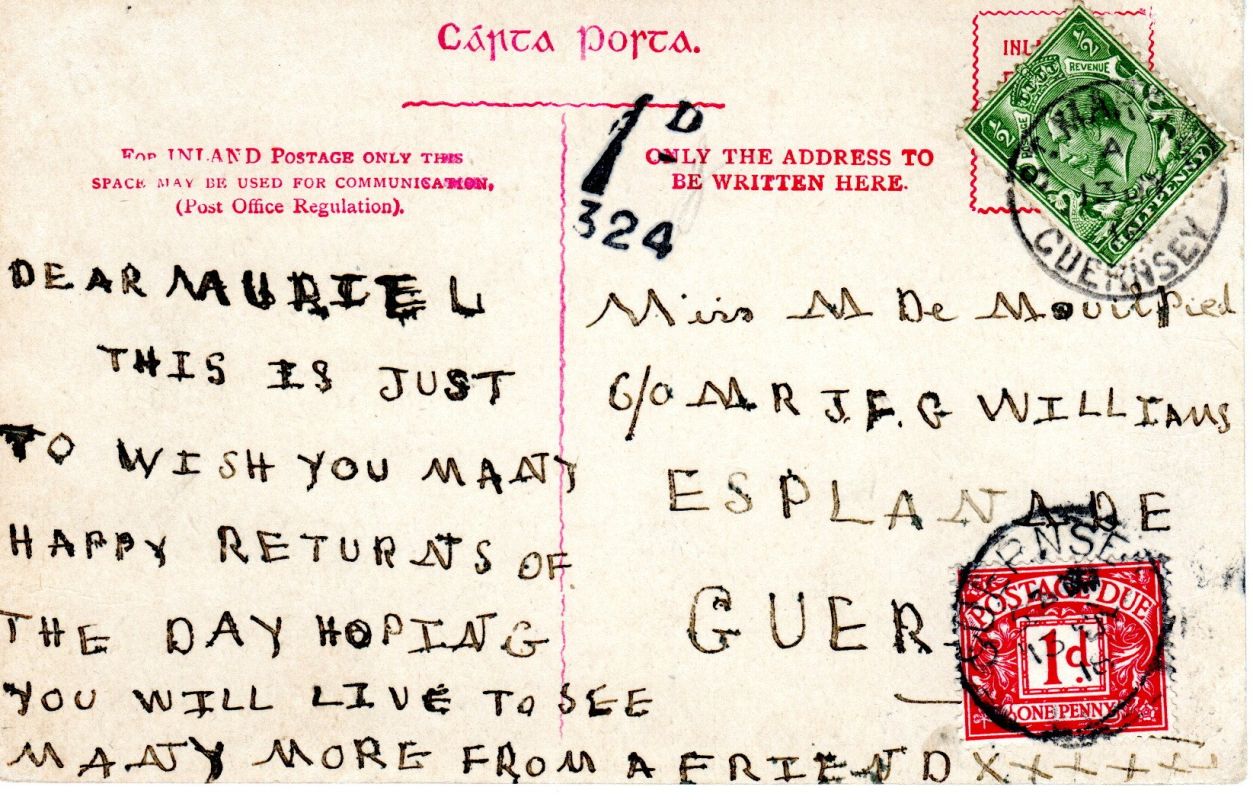 Cárta Poſta.
For INLAND Postage only this
space may be used for communication,
(Post Office Regulation).
ONLY THE ADDRESS TO
BE WRITTEN HERE.
1D
324
INL
½ REVENUE ½
HALFPENNY
GUERNSEY
DEAR MURIEL
THIS IS JUST
TO WISH YOU MANY
HAPPY RETURNS OF
THE DAY HOPING
YOU WILL LIVE TO SEE
MANY MORE FROM A FRIEND X + + + + +
Miss M De Mouilpied
C/O MR J.F.G WILLIAMS
ESPLANADE
GUER
GUERNSEY
POSTAGE DUE
1d
ONE PENNY